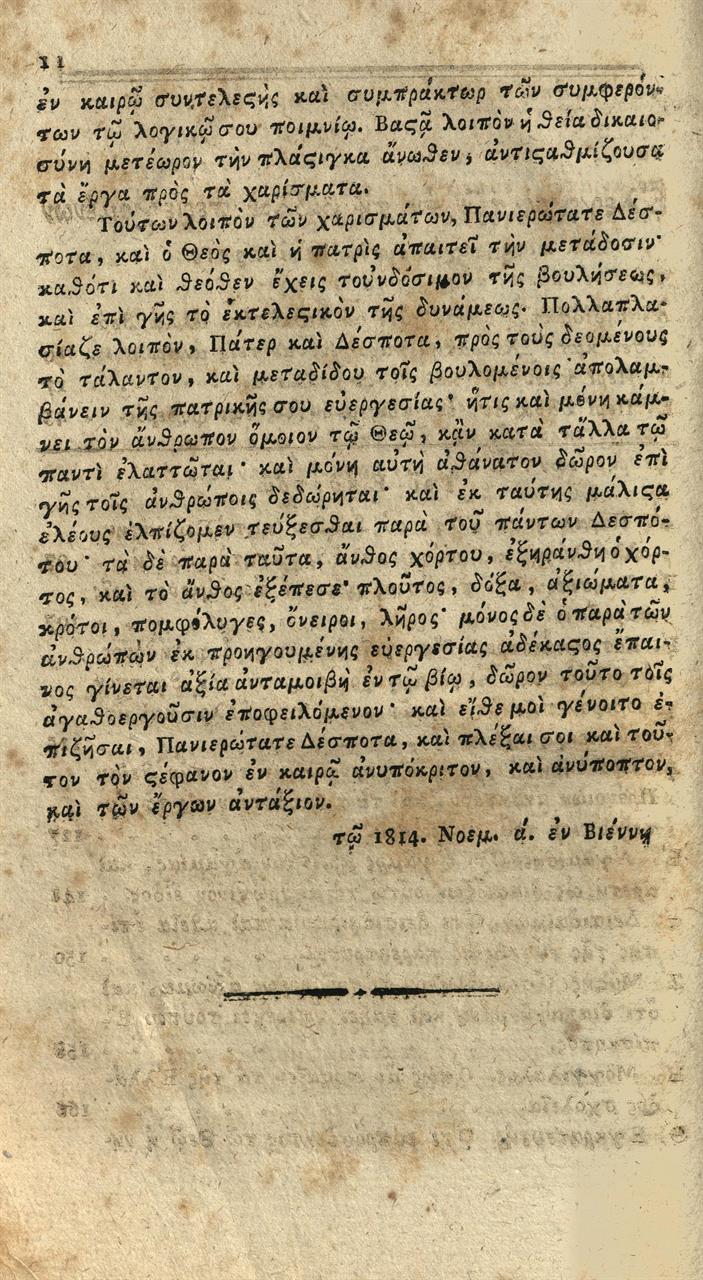 11
ἐν καιρῷ συντελεϛὴς καὶ συμπράκτωρ τῶν συμφερόν-
των τῷ λογικῷ σου ποιμνίῳ. Βαϛᾷ λοιπὸν ἡ θεία δικαιο-
σύνη μετέωρον τὴν πλάϛιγκα ἄνωθεν, ἀντιϛαθμίζουσα
τὰ ἔργα πρὸς τὰ χαρίσματα.
Τούτων λοιπὸν τῶν χαρισμάτων, Πανιερώτατε Δέσ-
ποτα, καὶ ὁ Θεὸς καὶ ἡ πατρὶς ἀπαιτεῖ τὴν μετάδοσιν·
καθότι καὶ θεόθεν ἔχεις τοὐνδόσιμον τῆς βουλήσεως,
καὶ ἐπὶ γῆς τὸ ἐκτελεϛικὸν τῆς δυνάμεως. Πολλαπλα-
σίαζε λοιπὸν, Πάτερ καὶ Δέσποτα, πρὸς τοὺς δεομένους
τὸ τάλαντον, καὶ μεταδίδου τοῖς βουλομένοις ἀπολαμ-
βάνειν τῆς πατρικῆς σου εὐεργεσίας· ἥτις καὶ μόνη κάμ-
νει τὸν ἄνθρωπον ὅμοιον τῷ Θεῷ, κᾂν κατὰ τἄλλα τῷ
παντὶ ἐλαττῶται· καὶ μόνη αὐτὴ ἀθάνατον δῶρον ἐπὶ
γῆς τοῖς ἀνθρώποις δεδώρηται· καὶ ἐκ ταύτης μάλιϛα
ἐλέους ἐλπίζομεν τεύξεσθαι παρὰ τοῦ πάντων Δεσπό-
του· τὰ δὲ παρὰ ταῦτα, ἄνθος χόρτου, ἐξηράνθη ὁ χόρ-
τος, καὶ τὸ ἄνθος ἐξέπεσε· πλοῦτος, δόξα, ἀξιώματα,
κρότοι, πομφόλυγες, ὄνειροι, λῆρος· μόνος δὲ ὁ παρὰ τῶν
ἀνθρώπων ἐκ προηγουμένης εὐεργεσίας ἀδέκαϛος ἔπαι-
νος γίνεται ἀξία ἀνταμοιβὴ ἐν τῷ βίῳ, δῶρον τοῦτο τοῖς
ἀγαθοεργοῦσιν ἐποφειλόμενον· καὶ εἴθε μοὶ γένοιτο ἐ-
πιζῆσαι, Πανιερώτατε Δέσποτα, καὶ πλέξαι σοι καὶ τοῦ-
τον τὸν ϛέφανον ἐν καιρῷ ἀνυπόκριτον, καὶ ἀνύποπτον,
καὶ τῶν ἔργων ἀντάξιον.
τῷ 1814. Νοεμ. ά. ἐν Βιέννῃ